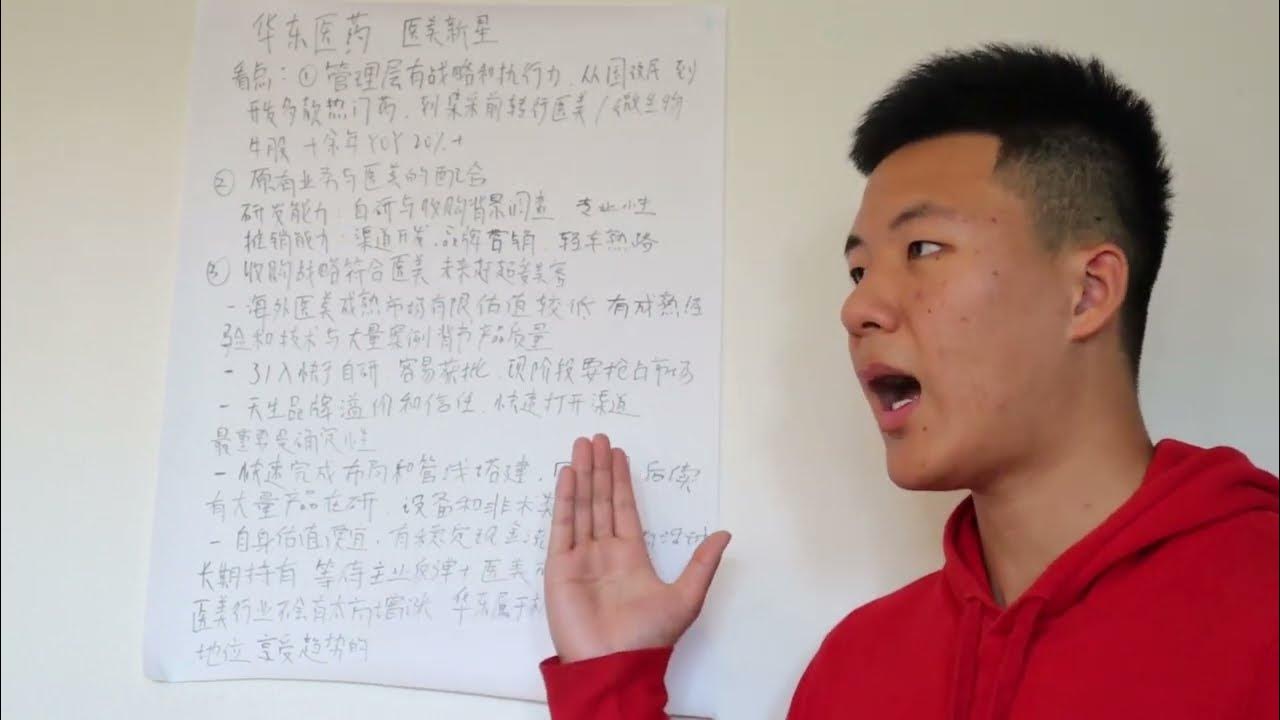 华东医药 医美新星
看点：① 管理层有战略和执行力 从 到
开发多款热门药，到 前转行医美/微生物
牛股 十余年YOY 20%+
② 原有业务与医美的配合
研发能力：自研与收购背景调查 专业性
推销能力：渠道开发、品牌营销，轻车熟路
③ 收购战略符合医美 未来
- 海外医美成熟市场有限估值较低 有成熟经
验和技术与大量案例背书产品质量
- 引入快于自研 容易获批，现阶段要抢占市场
- 天生品牌溢价和信任，快速打开渠道
最重要是确定性
- 快速完成布局和管线搭建， 后续
有大量产品在研，设备和非
- 自身估值便宜，有稳定现金
长期持有 等待主业反弹+医美
医美行业不会有太 华东属于
地位 享受趋势的